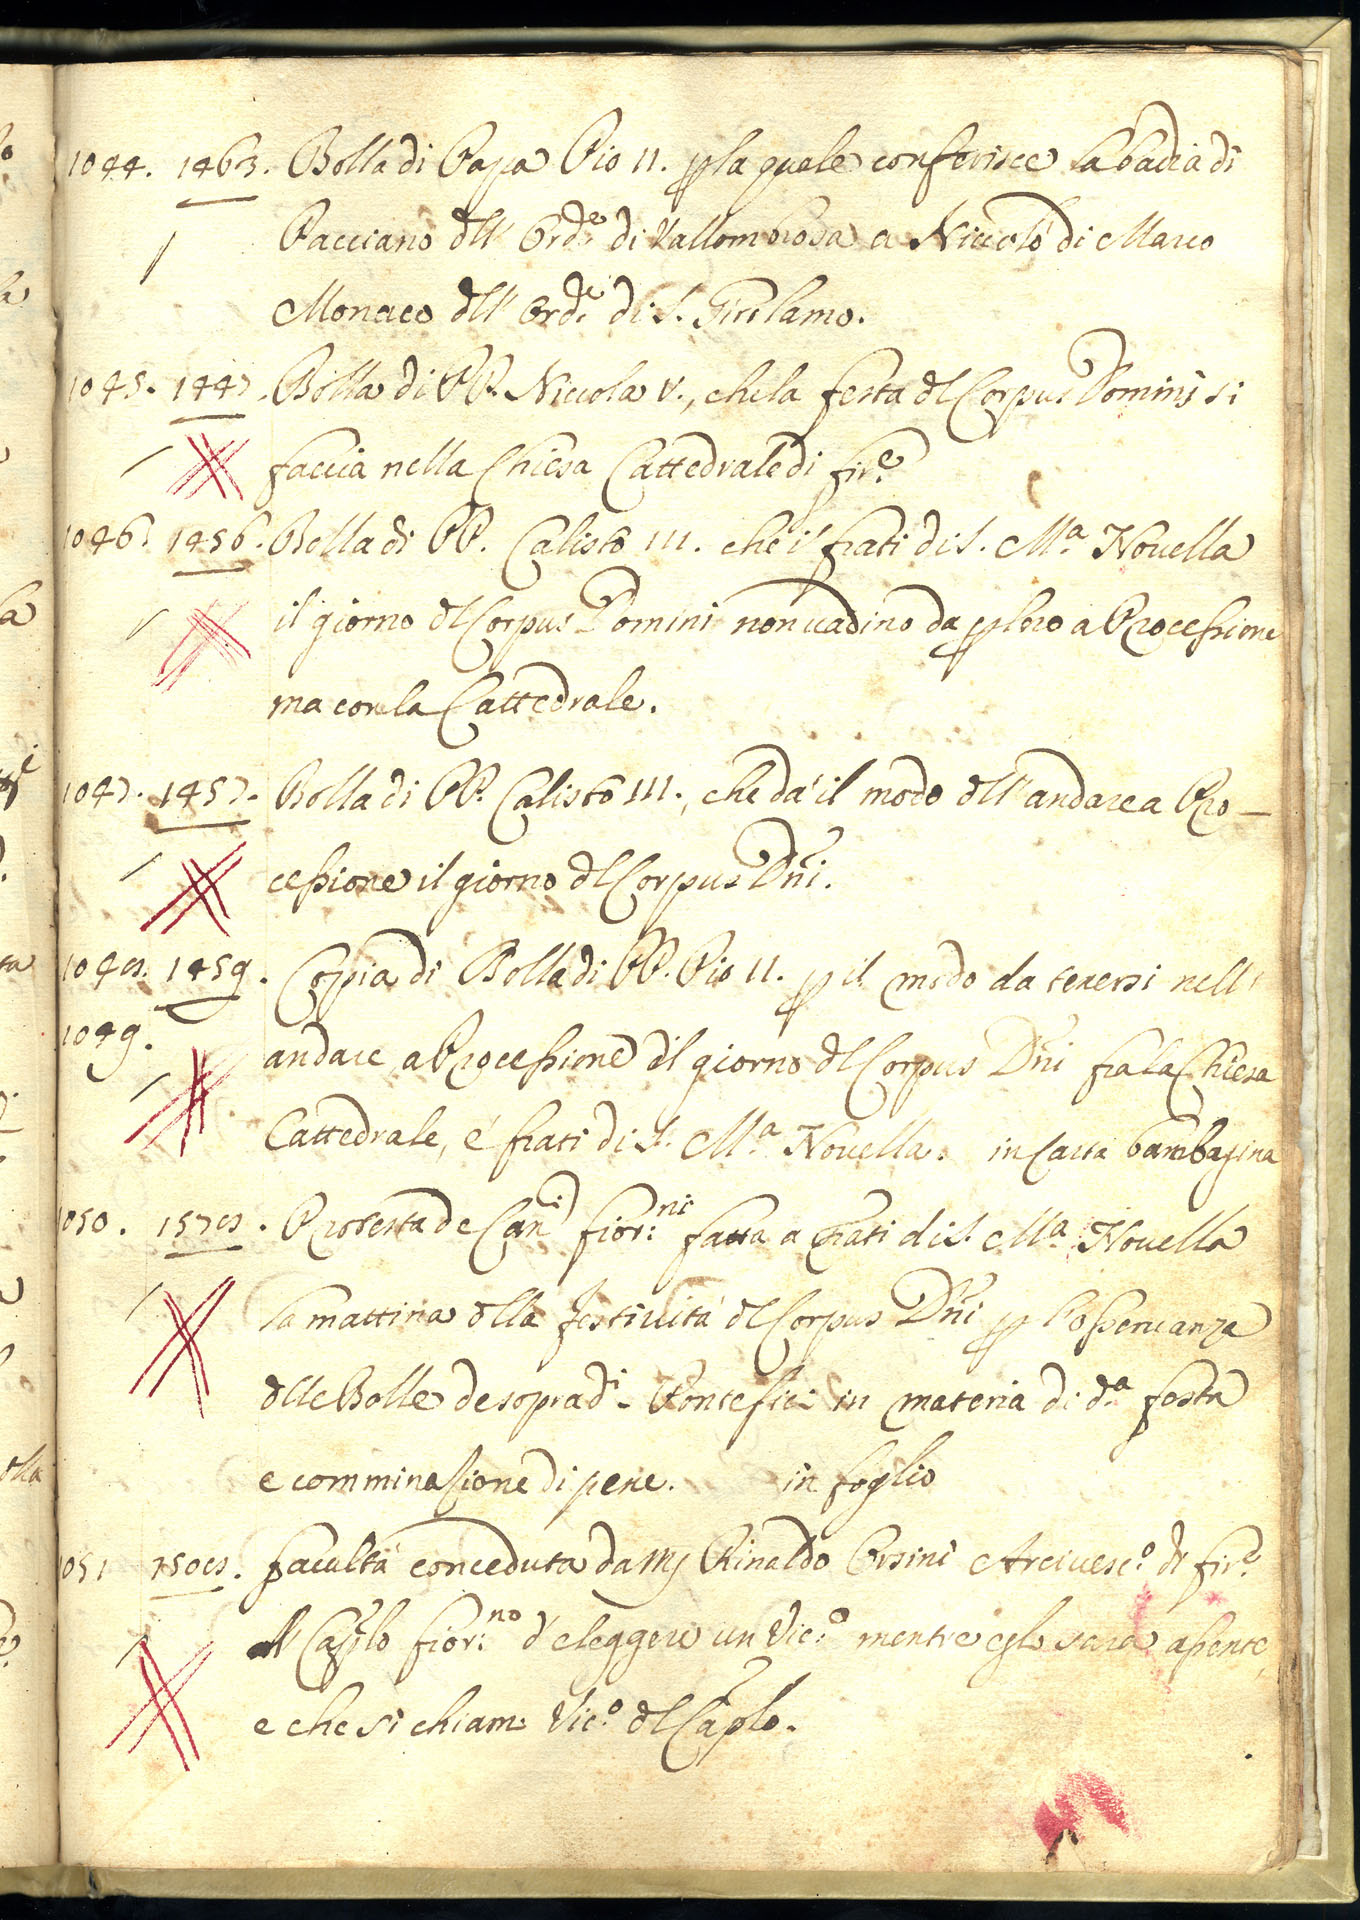 1044. 1463. Bolla di Papa Pio II. p la quale conferisce la badia di
Pacciano dll' Ord.e di Vallombrosa a Niccolò di Marco
Monaco dll' Ord.e di S. Girolamo.
1045. 1447. Bolla di PP. Niccola V., che la festa dl Corpus Domini si
faccia nella Chiesa Cattedrale di fir.e
1046. 1456. Bolla di PP. Calisto III. che i frati di S. M.a Novella
il giorno dl Corpus Domini non vadino da p loro a Processione
ma con la Cattedrale.
1047. 1457. Bolla di PP. Calisto III., che dà il modo dll' andare a Pro-
cessione il giorno dl Corpus Dñi.
1048. 1459. Copia di Bolla di PP. Pio II. p il modo da tenersi nell'
1049.
andare a Processione il giorno dl Corpus Dñi fra la Chiesa
Cattedrale, e' frati di S. M.a Novella. in Carta bambagina
1050. 1578. Protesta de Can.i fior.ni fatta a frati di S. M.a Novella
la mattina dlla festività dl Corpus Dñi p l'osservanza
dlle Bolle de sopradi Pontefici in materia di d.a festa
e comminazione di pene. in foglio
1051 1508. facultà conceduta da Mj Rinaldo Orsini Arcivesc.o di fir.e
al Cap̃lo fior.no d'eleggere un Vic.o mentre eglo sarà assente,
e che si chiam. Vic.o dl Cap̃lo.